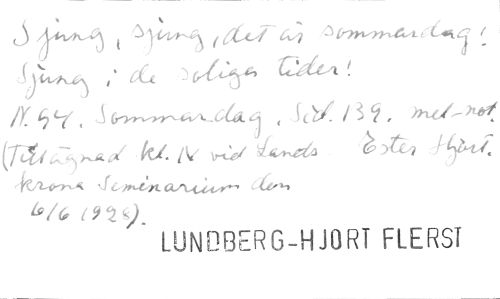 Sjung, sjung, det är sommardag!
Sjung i de soliga tider!
N. 94. Sommardag. Sid. 139. mel-not.
(Tillägnad kl. IV vid Lands- Ester Hjort.
krona Seminarium den
6/6 1928).
LUNDBERG-HJORT FLERST